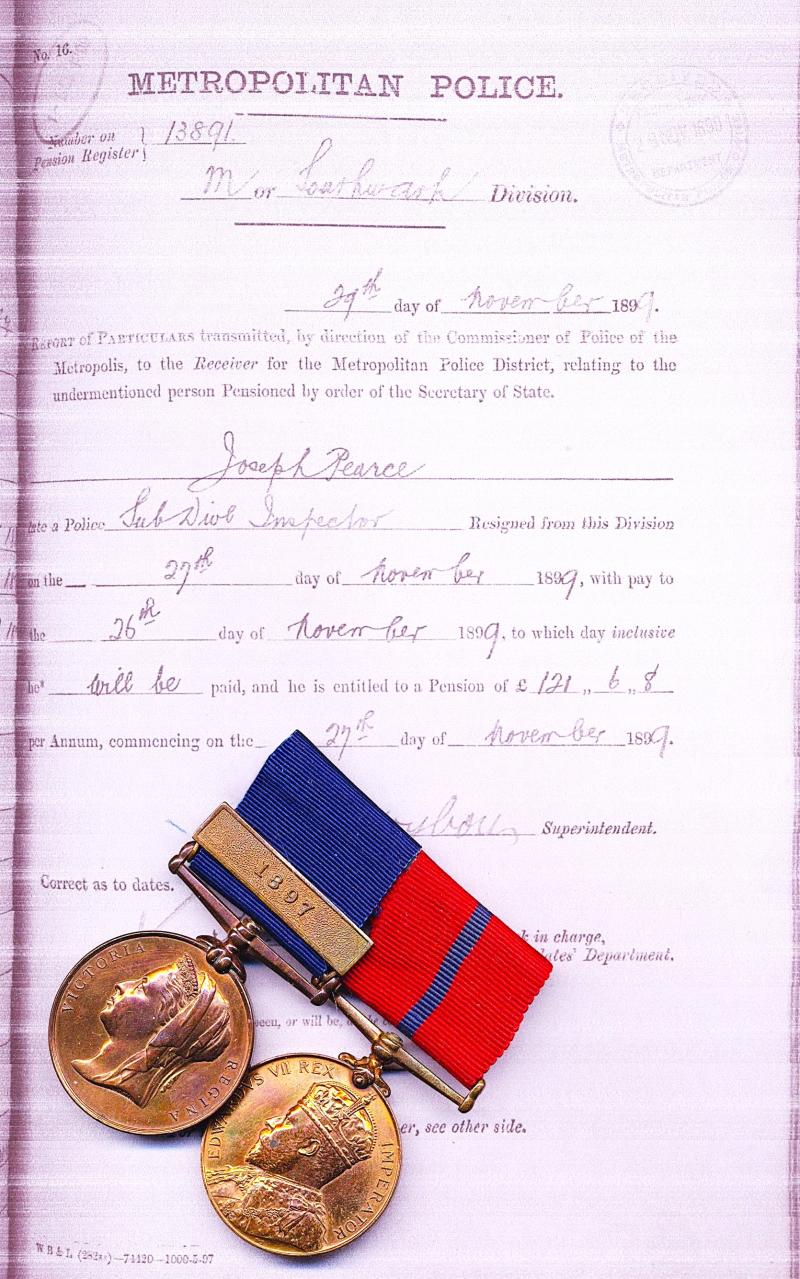 No. 16.
METROPOLITAN POLICE.
Number on Pension Register } 13891.
M or Southwark Division.
29th day of November 1899.
REPORT OF PARTICULARS transmitted, by direction of the Commissioner of Police of the
Metropolis, to the Receiver for the Metropolitan Police District, relating to the
undermentioned person Pensioned by order of the Secretary of State.
Joseph Pearce
late a Police Sub Divl Inspector Resigned from this Division
on the 27th day of November 1899, with pay to
the 26th day of November 1899, to which day inclusive
he* will be paid, and he is entitled to a Pension of £ 121 ,, 6 ,, 8
per Annum, commencing on the 27th day of November 1899.
Superintendent.
Correct as to dates.
1897
k in charge,
ates' Department.
VICTORIA REGINA
been, or will be,
EDWARDVS VII REX IMPERATOR
er, see other side.
—74420—1000-5-97
DEPARTMENT